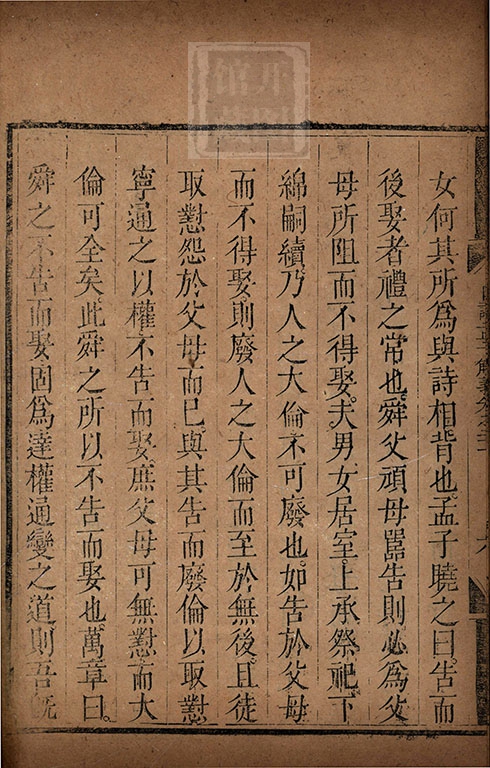 女何其所爲與詩相背也孟子曉之曰告而
後娶者禮之常也舜父頑母嚚告則必爲父
母所阻而不得娶夫男女居室上承祭祀下
綿嗣續乃人之大倫不可廢也如告於父母
而不得娶則廢人之大倫而至於無後且徒
取懟怨於父母而已與其告而廢倫以取懟
寧通之以權不告而娶庶父母可無懟而大
倫可全矣此舜之所以不告而娶也萬章曰
舜之不告而娶固爲達權通變之道則吾旣